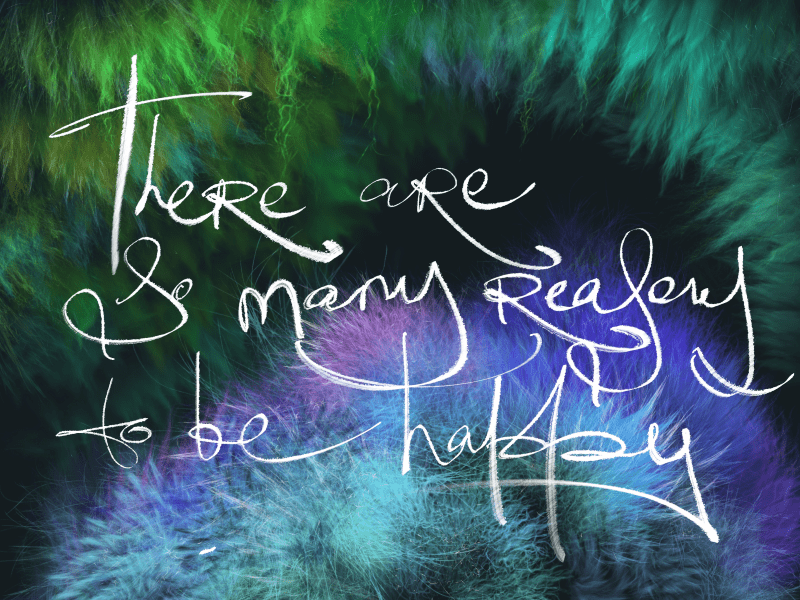 There are
So many reasons
to be happy